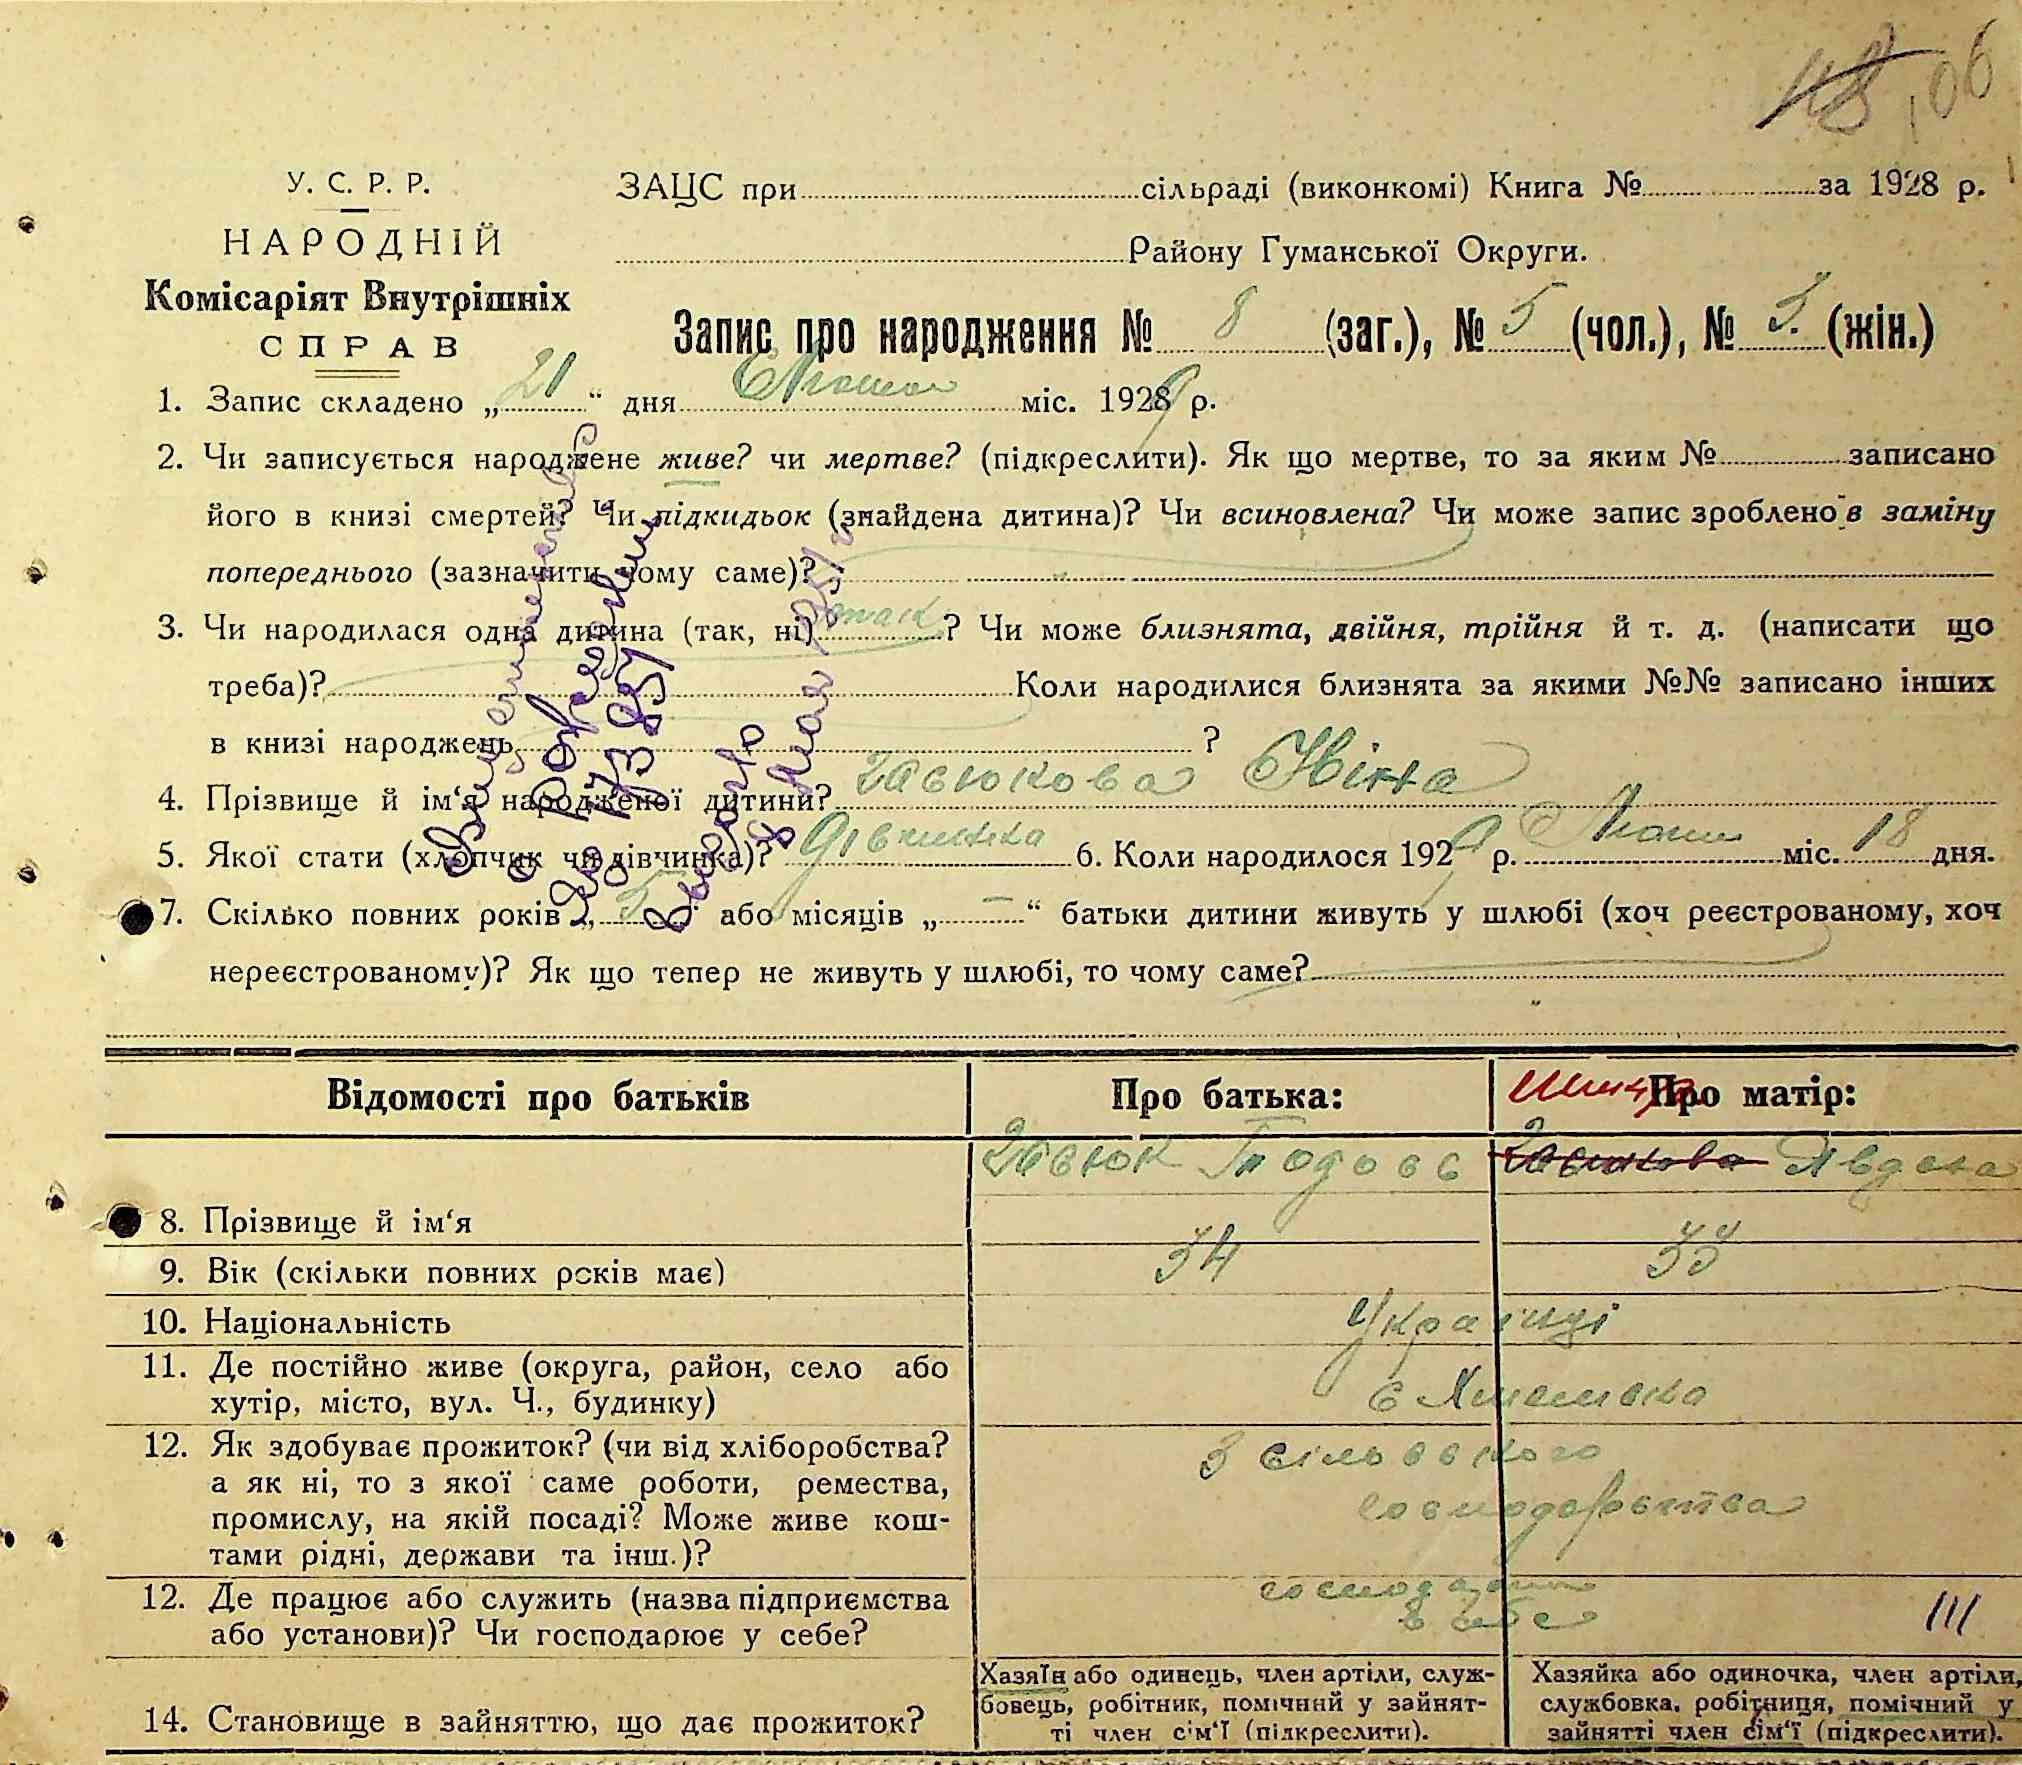 106
У. С. Р. Р.
НАРОДНІЙ
Комісаріят Внутрішніх
СПРАВ
ЗАЦС при сільраді (виконкомі) Книга № за 1928 р.
Району Гуманської Округи.
Запис про народження № 8 (заг.), № 5 (чол.), № 3 (жін.)
1. Запис складено „21“ дня міс. 1929 р.
2. Чи записується народжене живе? чи мертве? (підкреслити). Як що мертве, то за яким № записано
його в книзі смертей? Чи підкидьок (знайдена дитина)? Чи всиновлена? Чи може запис зроблено в заміну
попереднього (зазначити чому саме)?
3. Чи народилася одна дитина (так, ні) так? Чи може близнята, двійня, трійня й т. д. (написати що
треба)? Коли народилися близнята за якими №№ записано інших
в книзі народжень ?
4. Прізвище й ім‘я народженої дитини? Ніна
5. Якої стати (хлопчик чи дівчинка)? дівчинка 6. Коли народилося 1929 р. міс. 18 дня.
7. Скілько повних років „5“ або місяців „—“ батьки дитини живуть у шлюбі (хоч реєстрованому, хоч
нереєстрованому)? Як що тепер не живуть у шлюбі, то чому саме?
Відомості про батьків
Про батька:
Про матір:
8. Прізвище й ім‘я
Тодось
Явдоха
9. Вік (скільки повних років має)
34
33
10. Національність
Українці
11. Де постійно живе (округа, район, село або
хутір, місто, вул. Ч., будинку)
с
12. Як здобуває прожиток? (чи від хліборобства?
а як ні, то з якої саме роботи, ремества,
промислу, на якій посаді? Може живе кош-
тами рідні, держави та інш.)?
З сільського
господарства
12. Де працює або служить (назва підприємства
або установи)? Чи господарює у себе?
в себе
III
14. Становище в зайняттю, що дає прожиток?
Хазяїн або одинець, член артіли, служ-
бовець, робітник, помічний у зайнят-
ті член сім‘ї (підкреслити).
Хазяйка або одиночка, член артіли,
службовка, робітниця, помічний у
зайнятті член сім‘ї (підкреслити).